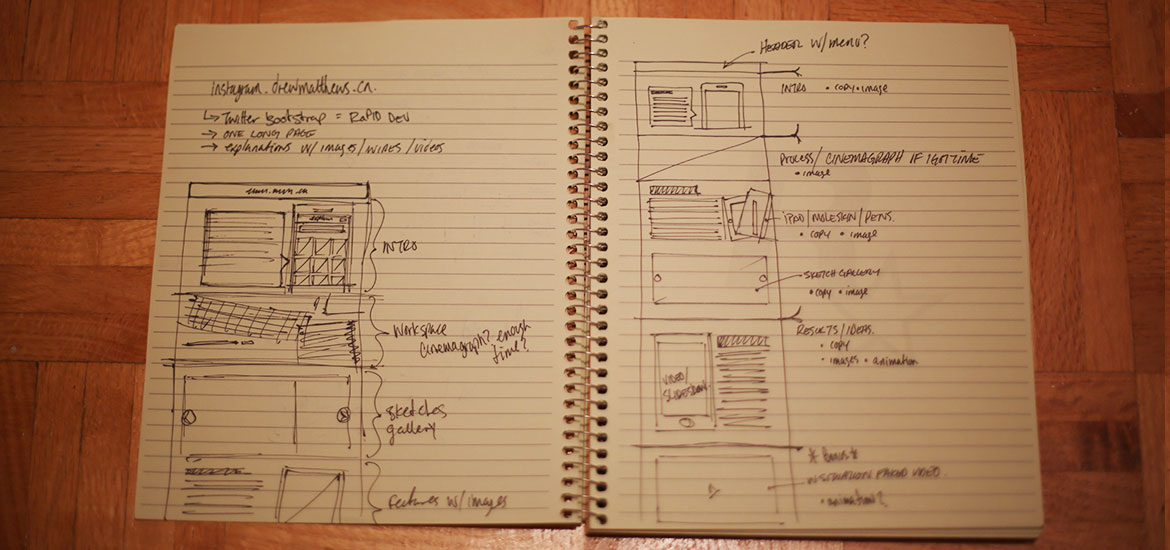 instagram.drewmatthews.ca.
↳ Twitter bootstrap = RAPID DEV
→ ONE LONG PAGE
→ explanations w/ images/wires/videos
INTRO
Workspace
Cinemagraph? enough
time?
sketches
gallery
features w/ images
HEADER w/ menu?
INTRO • copy • image
PROCESS/ CINEMAGRAPH IF I GOT TIME
• image
IPAD/MOLESKIN/PENS.
• copy • image
SKETCH GALLERY
• copy • image
RESULTS/IDEAS.
• copy
• images • animation
VIDEO/
SLIDESHOW.
* Bonus *
VIDEO.
• animation?